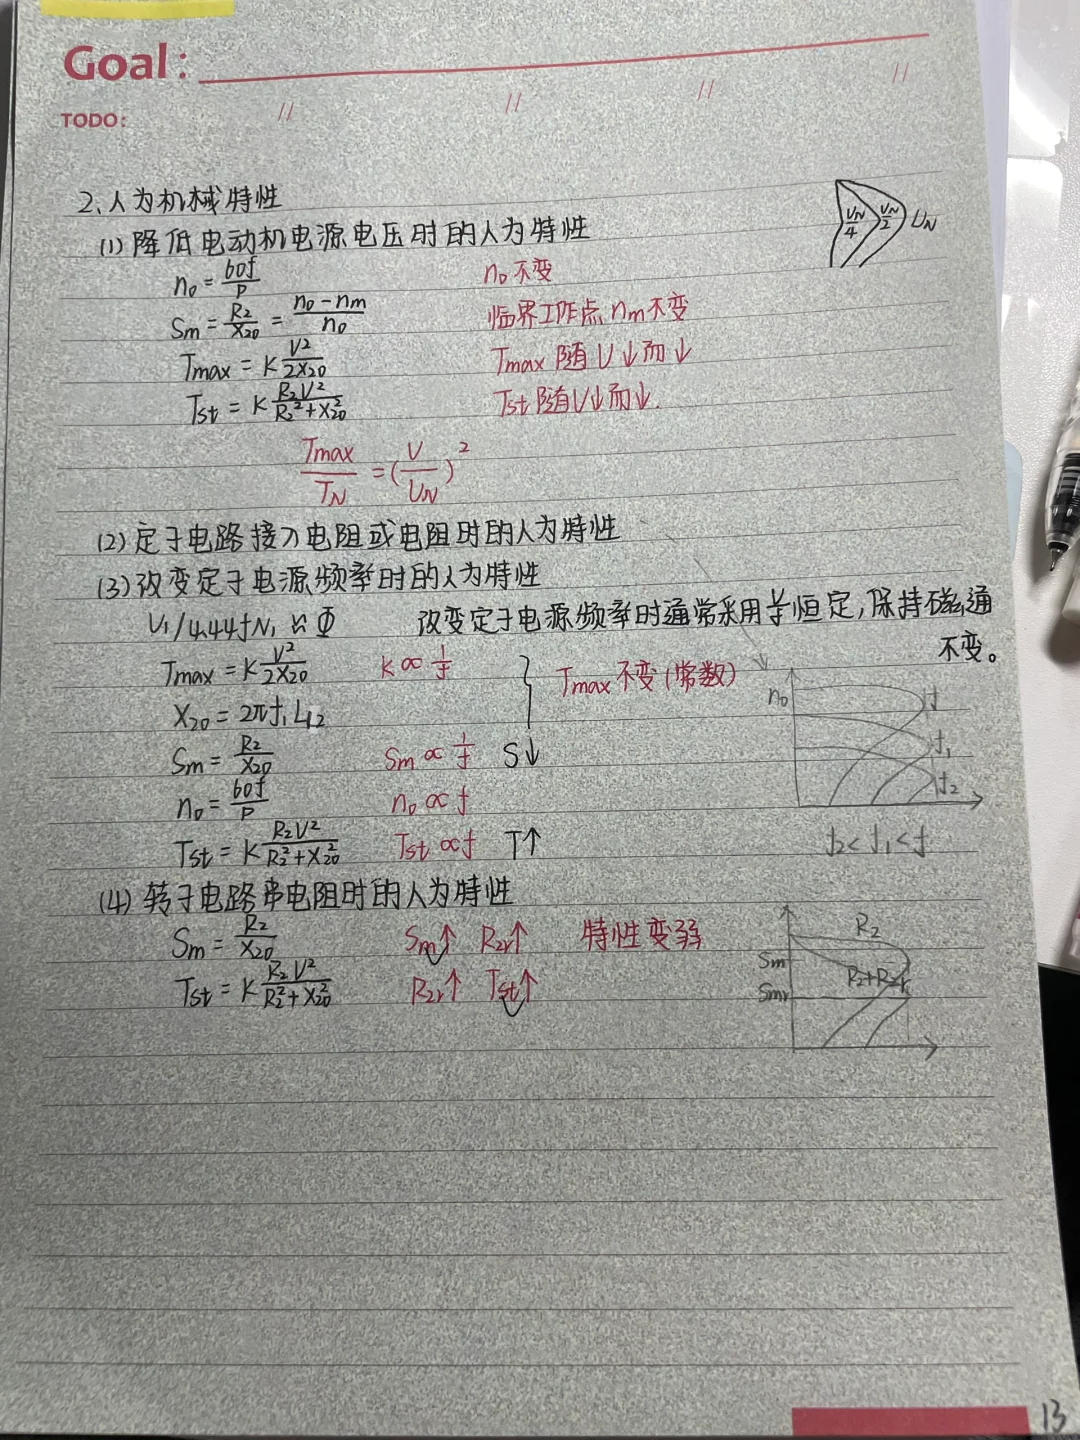 Goal:
TODO:
// // // //
2、人为机械特性
(1) 降低电动机电源电压时的人为特性
n₀ = 60f/P n₀不变
Sm = R₂/X₂₀ = (n₀-nm)/n₀ 临界工作点nm不变
Tmax = K U²/2X₂₀ Tmax随U↓而↓
Tst = K R₂U²/(R₂²+X₂₀²) Tst随U↓而↓.
Tmax/TN = (U/UN)²
UN/4 UN/2 UN
(2) 定子电路接入电阻或电阻时的人为特性
(3) 改变定子电源频率时的人为特性
U₁/4.44fN₁ ≈ Φ 改变定子电源频率时通常采用U/f恒定,保持磁通
不变。
Tmax = K U²/2X₂₀ K∝1/f } Tmax不变(常数)
X₂₀ = 2πf₁L₁₂
Sm = R₂/X₂₀ Sm∝1/f S↓
n₀ = 60f/P n₀∝f
Tst = K R₂U²/(R₂²+X₂₀²) Tst∝f T↑
n₀ f f₁ f₂
f₂<f₁<f
(4) 转子电路串电阻时的人为特性
Sm = R₂/X₂₀ Sm↑ R₂r↑ 特性变弱
Tst = K R₂U²/(R₂²+X₂₀²) R₂r↑ Tst↑
R₂
Sm R₂+R₂r
Smr
13